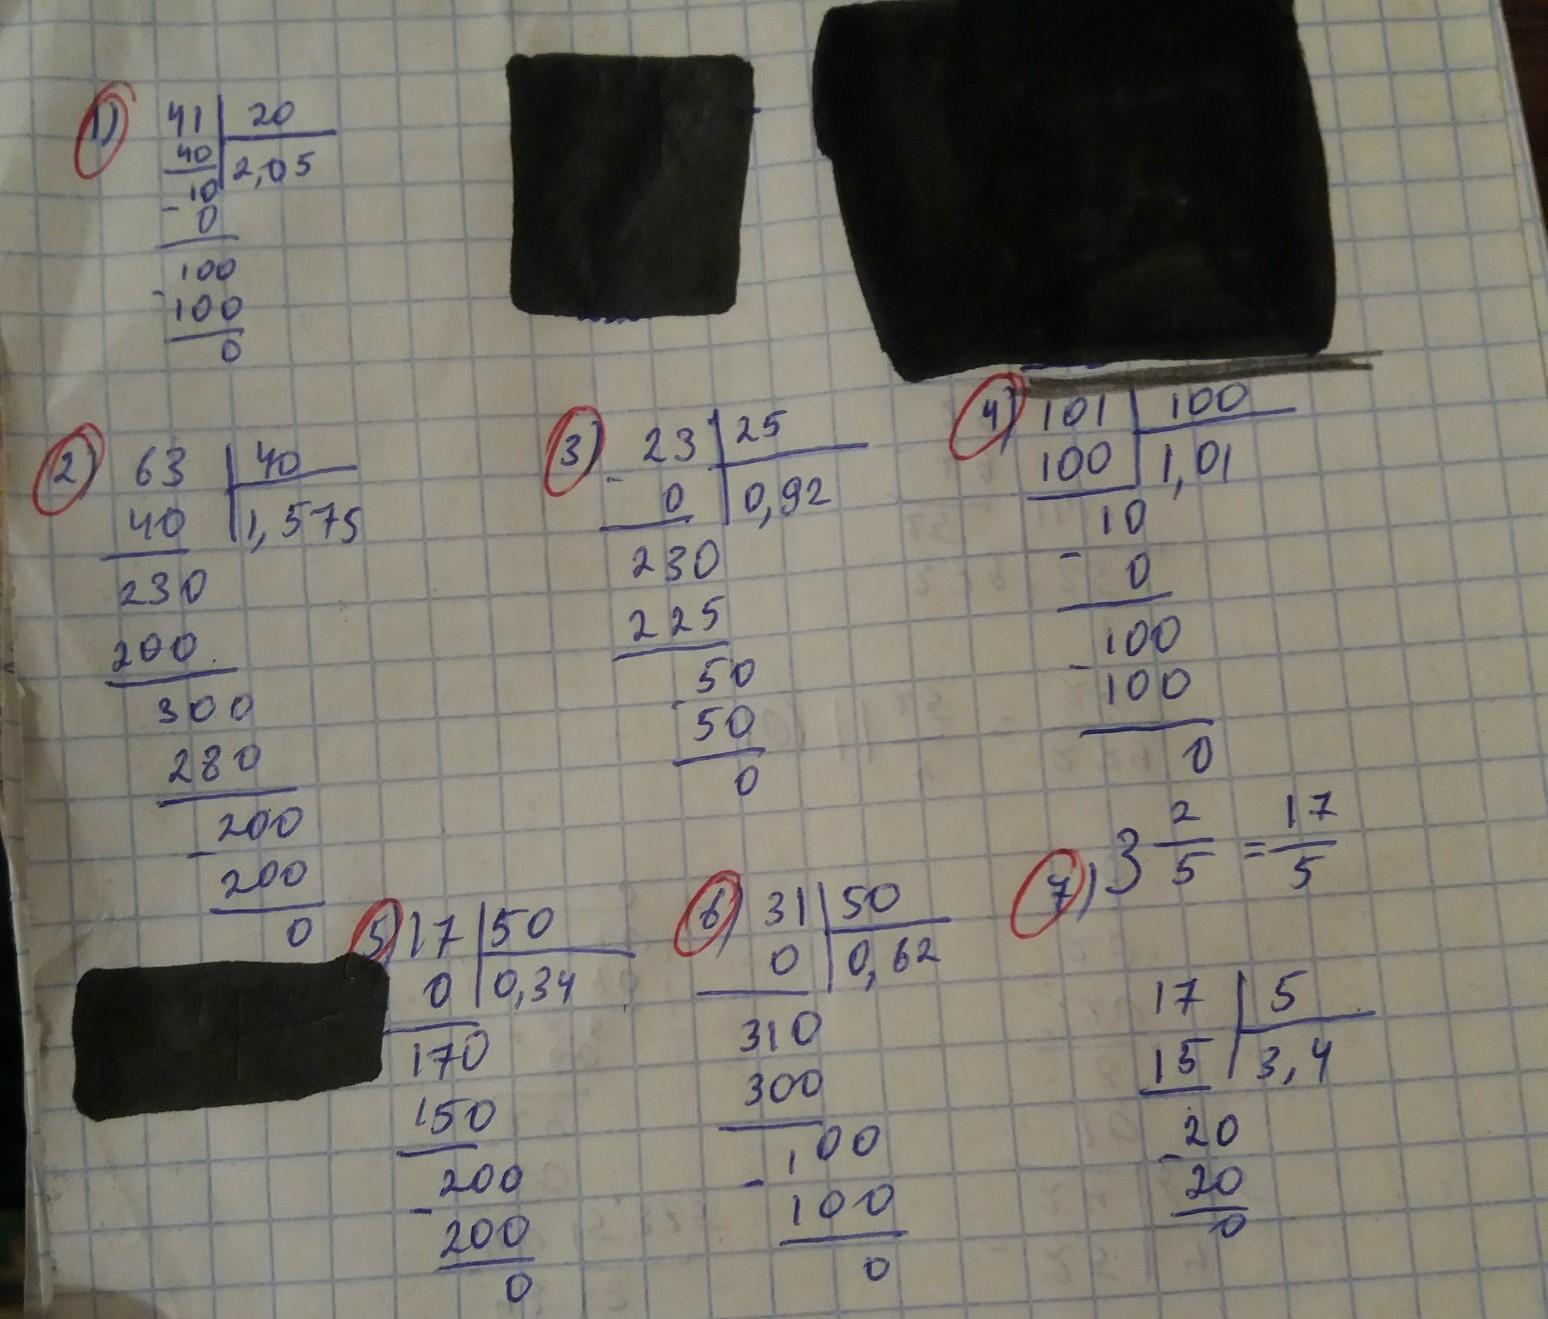 1) 41 | 20
40 | 2,05
- 10
0
- 100
100
0
2) 63 | 40
40 | 1,575
230
200
300
280
- 200
200
0
3) - 23 | 25
0 | 0,92
230
225
- 50
50
0
4) 101 | 100
100 | 1,01
- 10
0
- 100
100
0
5) 17 | 50
0 | 0,34
170
150
- 200
200
0
6) 31 | 50
0 | 0,62
310
300
- 100
100
0
7) 3 2/5 = 17/5
17 | 5
15 | 3,4
- 20
20
0